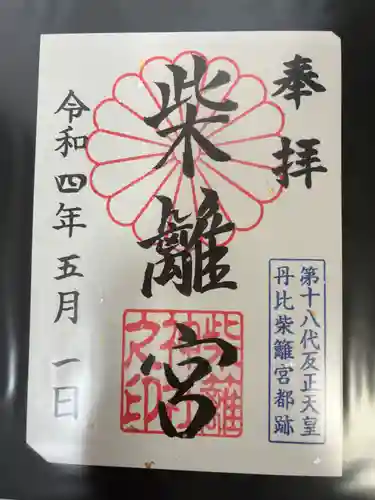 奉拝
第十八代反正天皇
丹比柴籬宮都跡
柴籬宮
柴籬神社之印
令和四年五月一日